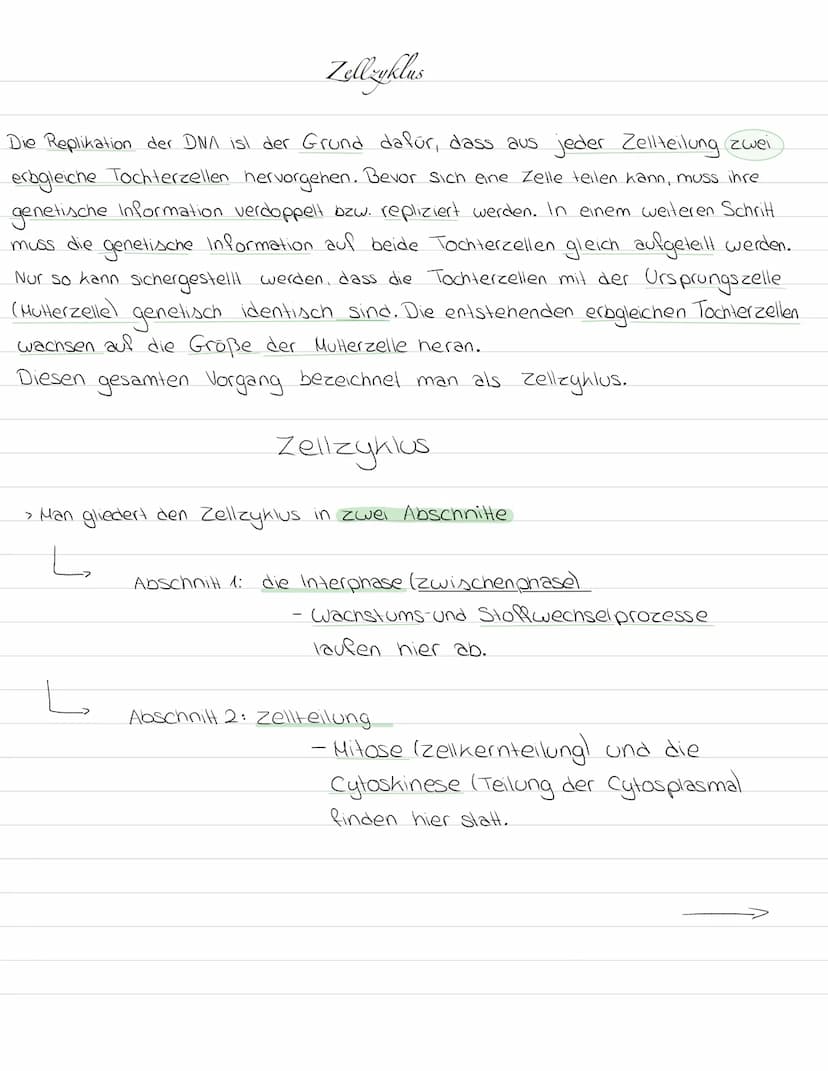 Zellzyklus
Die Replikation der DNA ist der Grund dafür, dass aus jeder Zellteilung zwei
erbgleiche Tochterzellen hervorgehen. Bevor sich eine Zelle teilen kann, muss ihre
genetische Information verdoppelt bzw. repliziert werden. In einem weiteren Schritt
muss die genetische Information auf beide Tochterzellen gleich aufgeteilt werden.
Nur so kann sichergestellt werden, dass die Tochterzellen mit der Ursprungszelle
(Mutterzelle) genetisch identisch sind. Die entstehenden erbgleichen Tochterzellen
wachsen auf die Größe der Mutterzelle heran.
Diesen gesamten Vorgang bezeichnet man als Zellzyklus.
Zellzyklus
> Man gliedert den Zellzyklus in zwei Abschnitte
Abschnitt 1: die Interphase (Zwischenphase)
- Wachstums- und Stoffwechselprozesse
laufen hier ab.
Abschnitt 2: Zellteilung
- Mitose (Zellkernteilung) und die
Cytoskinese (Teilung der Cytosplasma)
finden hier statt.